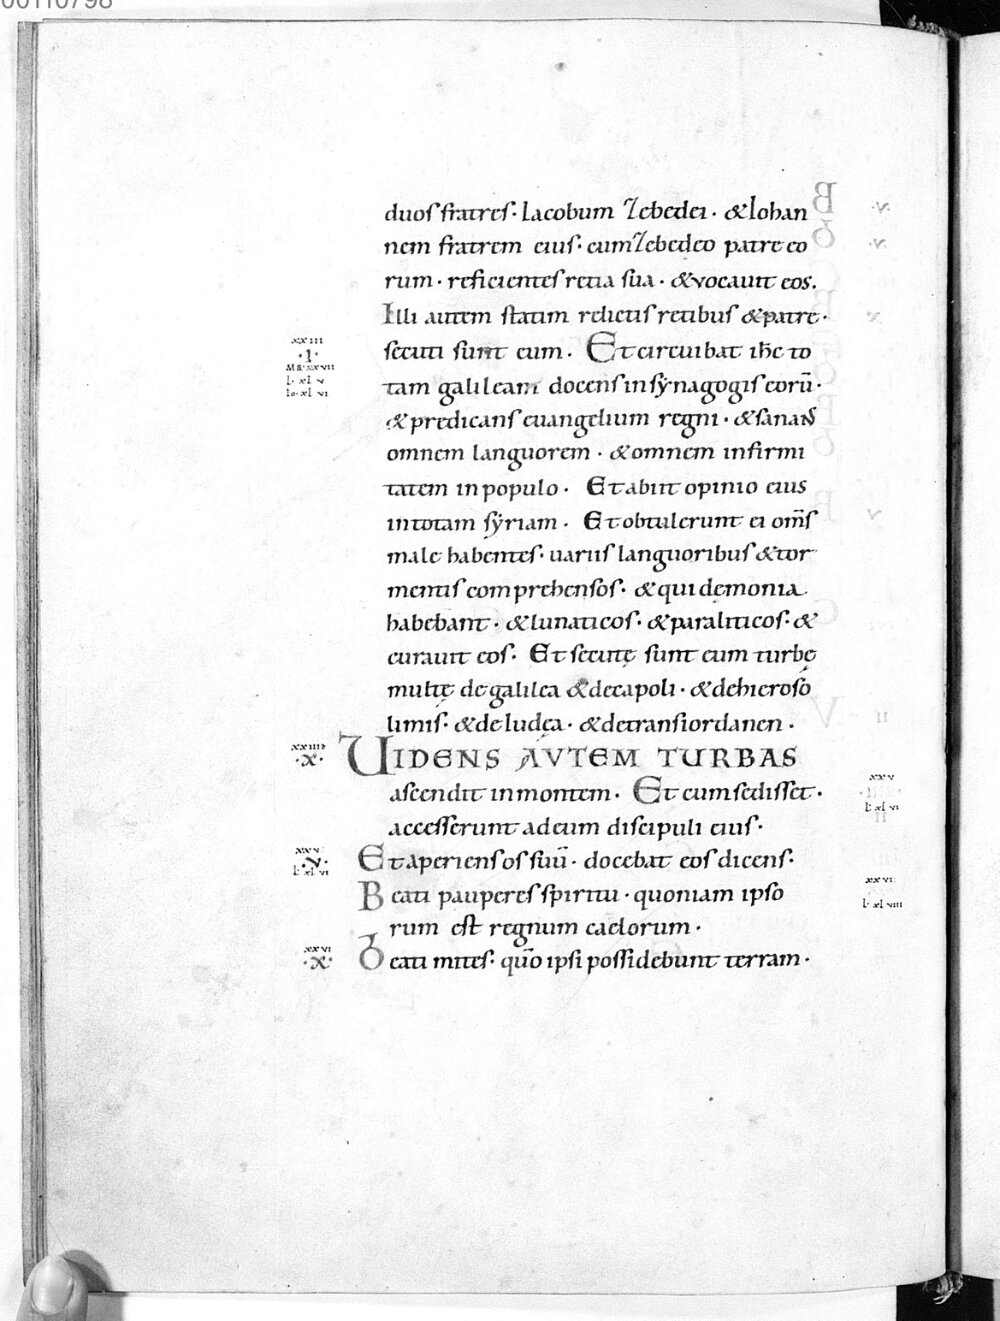 00110798
duos fratres· Iacobum Zebedei· & Iohan
nem fratrem eius· cum Zebedeo patre eo
rum· reficientes retia sua· & vocavit eos.
Illi autem statim relictis retibus & patre·
secuti sunt eum· Et circuibat ihc to
xxiii
·I·
MR·xxvii
L·xlv
Io·xlvi
tam galileam docens in synagogis eorū·
& predicans euangelium regni· & sanans
omnem languorem· & omnem infirmi
tatem in populo· Et abiit opinio eius
in totam syriam· Et obtulerunt ei om̄s
male habentes· uariis languoribus & tor
mentis comprehensos· & qui demonia
habebant· & lunaticos· & paraliticos· &
curauit eos· Et secutę sunt eum turbę
multę de galilea & decapoli· & de hieroso
limis· & de Iudęa· & de trans iordanen·
xxiiii
·X·
VIDENS AVTEM TURBAS
ascendit in montem· Et cum sedisset·
xxv
L·xlvi
accesserunt ad eum discipuli eius·
xxv
·V·
L·xlvi
Et aperiens os suū· docebat eos dicens·
Beati pauperes spiritu· quoniam ipso
xxvi
L·xlviii
rum est regnum caelorum·
xxvi
·X·
Beati mites· quō ipsi possidebunt terram·